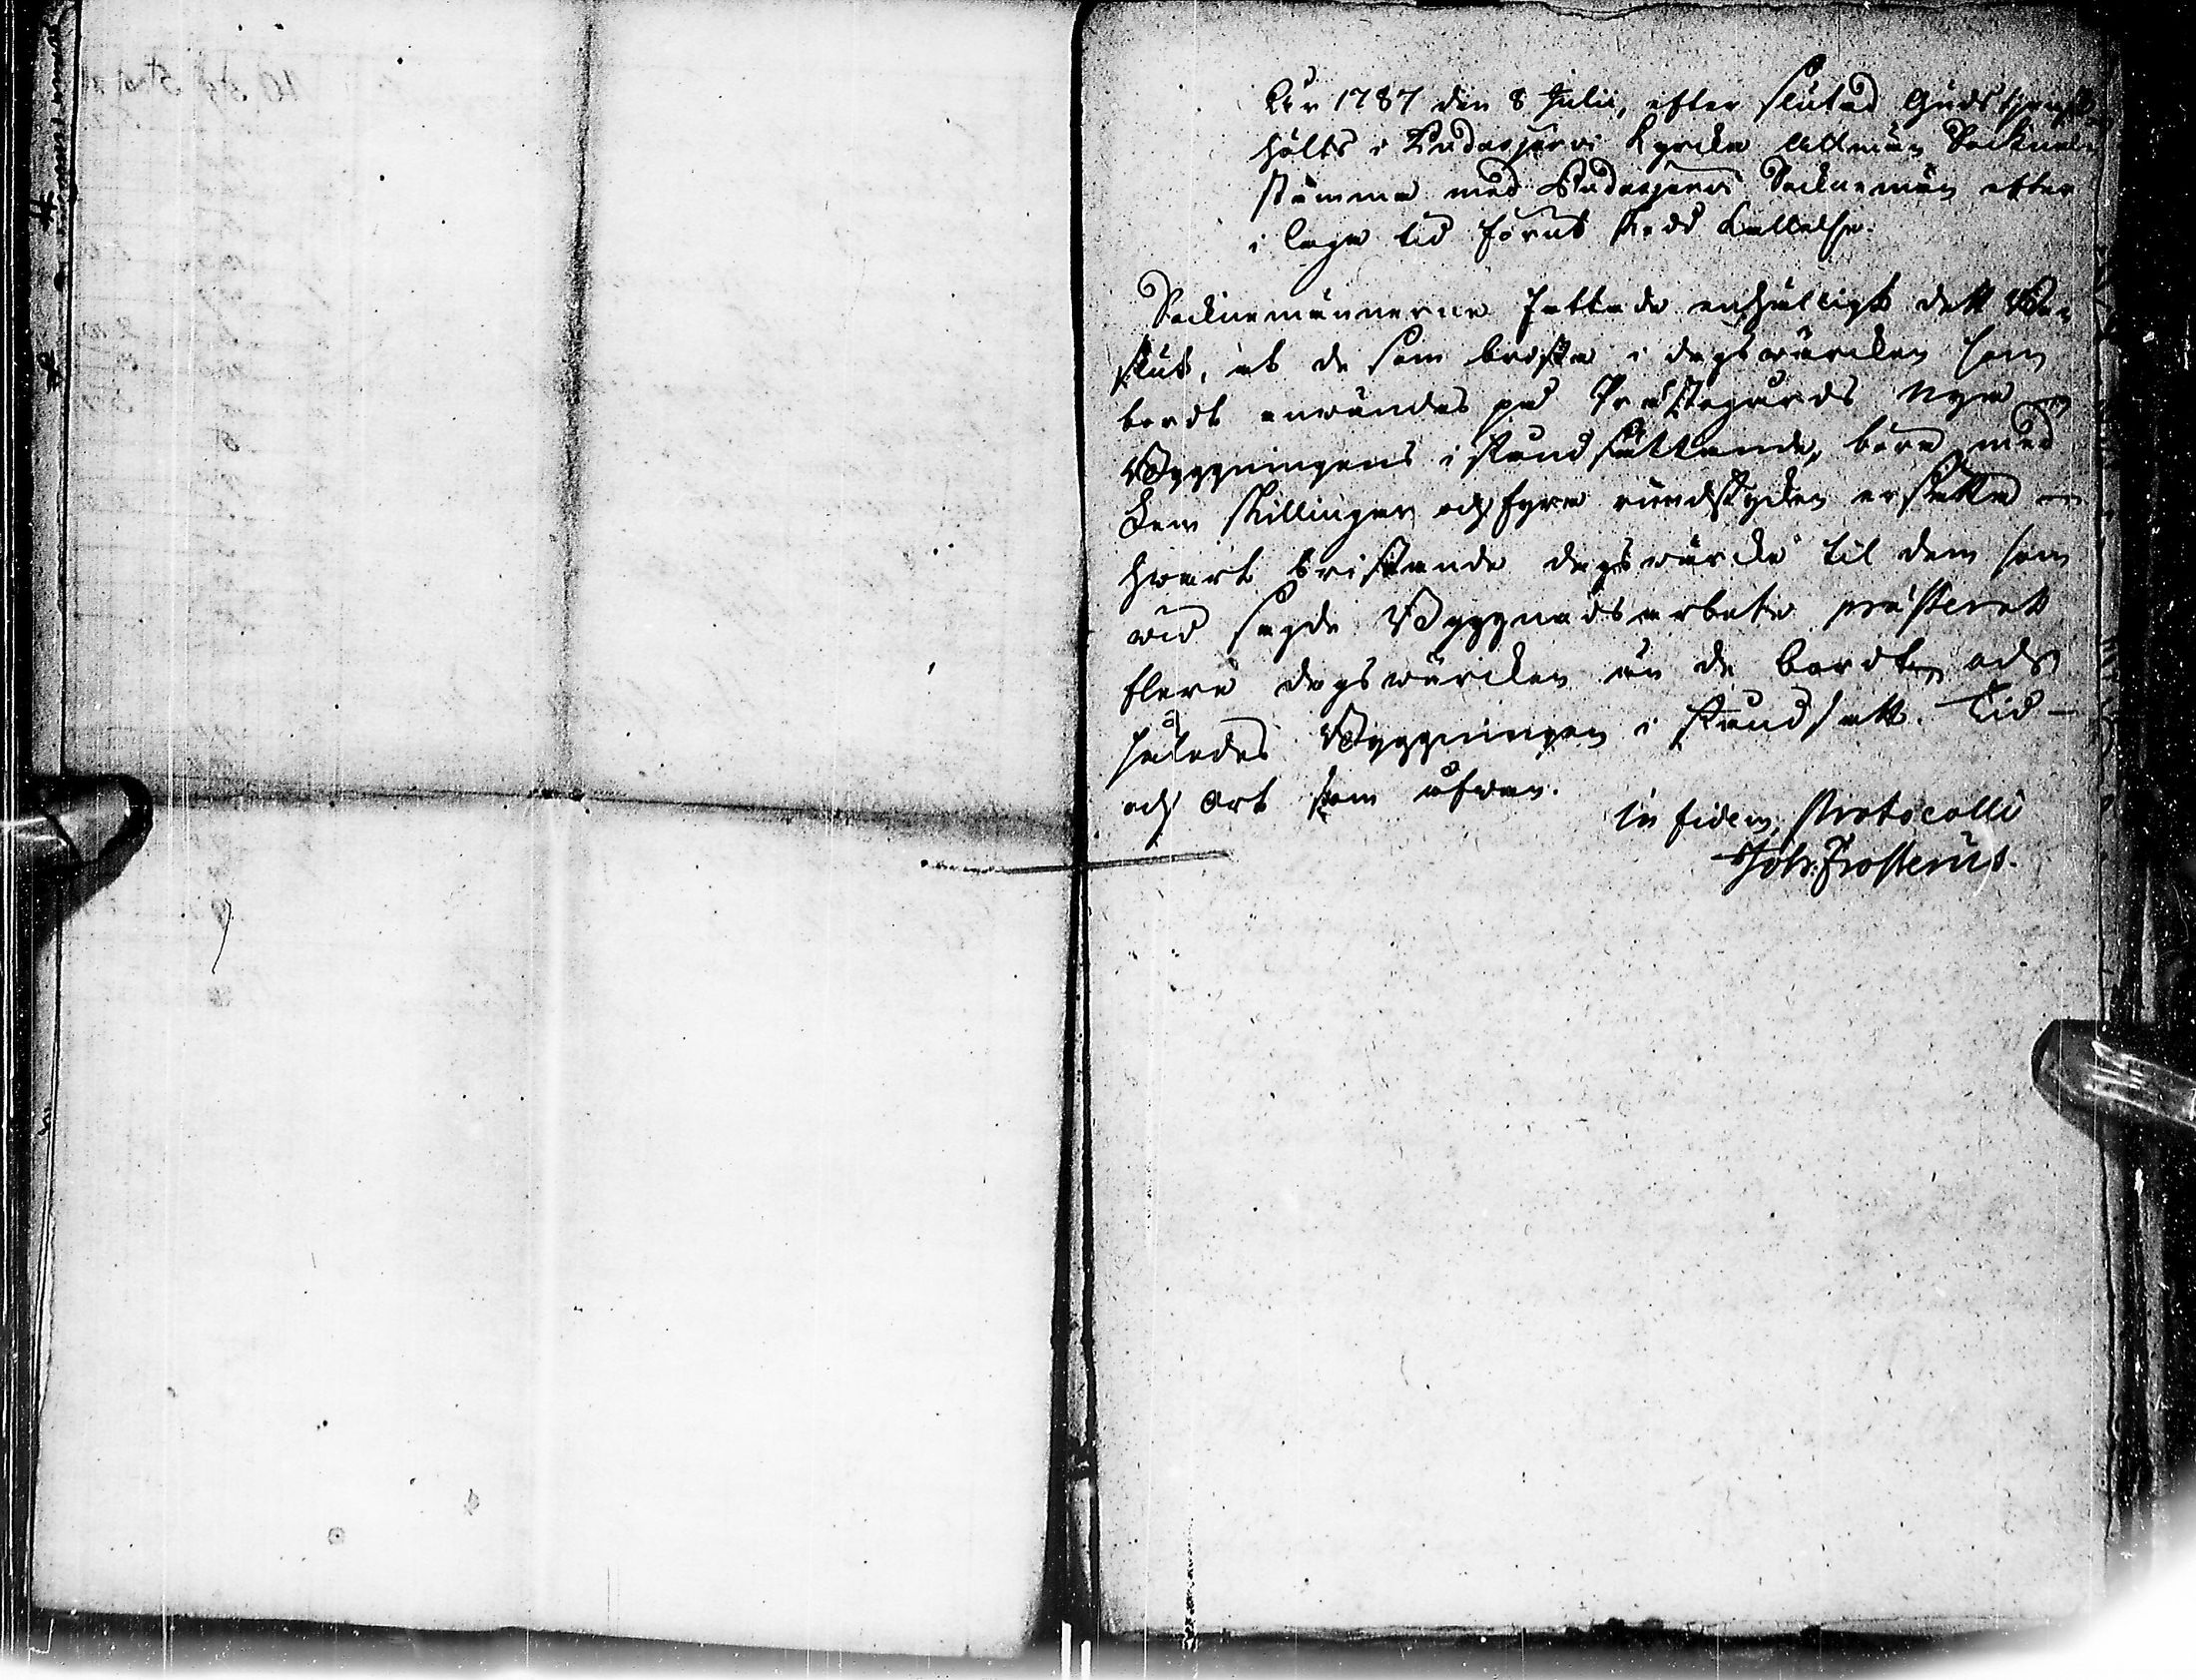 Åhr 1787 den 8 Julii, efter slutad Gudstjenst
hölts i Pudasjervi Kyrcka Allmän Sockne
stämma med Pudasjervi Socknemän efter
i laga tid förut skedd kallelse.
Socknemännerne fattade enhälligt dett Be-
slut, at de som brista i dagswärcken som
bordt anwändas på Prästegårds nya
Byggningens i stånd sättande, böra med
Fem skillingar och fyra rundstycken ersätta
hwart bristande dagswärcke til dem som
wid sagde Byggnads arbete præsterat
flera dagswärcken än de bordt och
således Byggningen i stånd satt. Tid
och Ort som ofwan.
in fidem Protocolli
Joh: Frosterus.